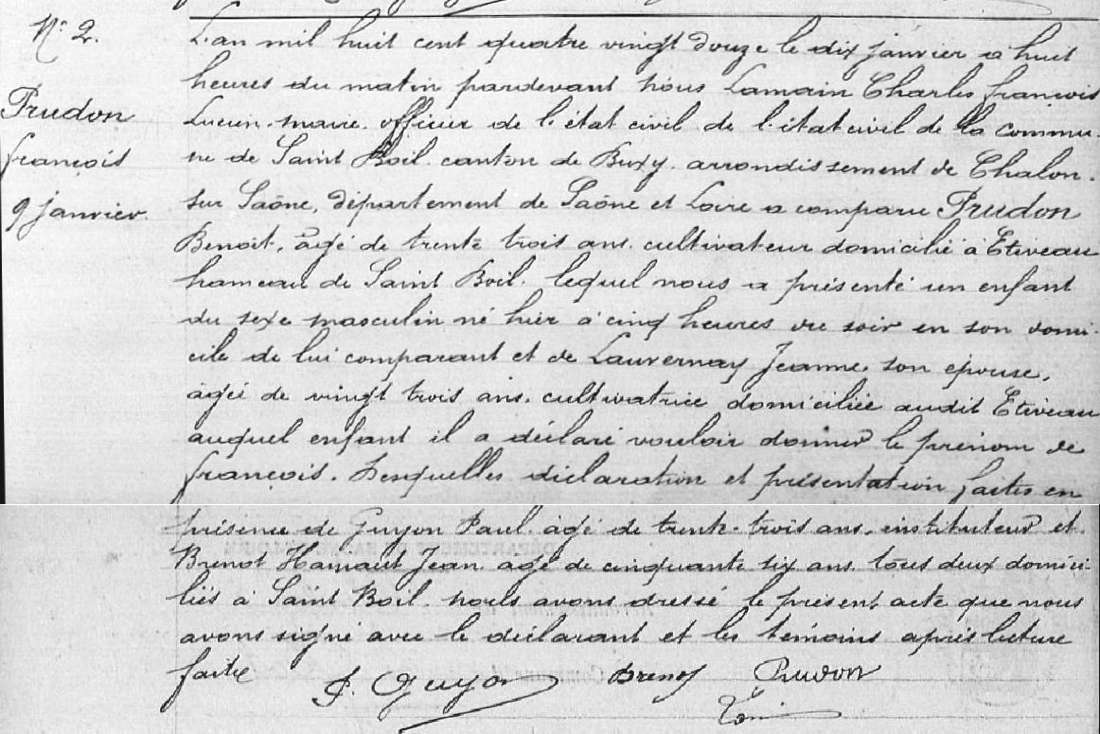 N° 2.
Prudon
françois
9 janvier
L'an mil huit cent quatre vingt douze le dix janvier à huit
heures du matin pardevant nous Lamain Charles françois
Lucien maire officier de l'état civil de l'état civil de la commu-
ne de Saint Boil canton de Buxy arrondissement de Chalon
sur Saône, département de Saône et Loire a comparu Prudon
Benoit, âgé de trente trois ans cultivateur domicilié à Etiveau
hameau de Saint Boil lequel nous a présenté un enfant
du sexe masculin né hier à cinq heures du soir en son domi-
cile de lui comparant et de Lauvernay Jeanne son épouse,
âgée de vingt trois ans cultivatrice domiciliée audit Etiveau
auquel enfant il a déclaré vouloir donner le prénom de
françois. Lesquelles déclaration et présentation faites en
présence de Guyon Paul âgé de trente trois ans instituteur et
Brenot Jean âgé de cinquante six ans tous deux domici-
liés à Saint Boil nous avons dressé le présent acte que nous
avons signé avec le déclarant et les témoins après lecture
faite
P. Guyon Brenot Prudon